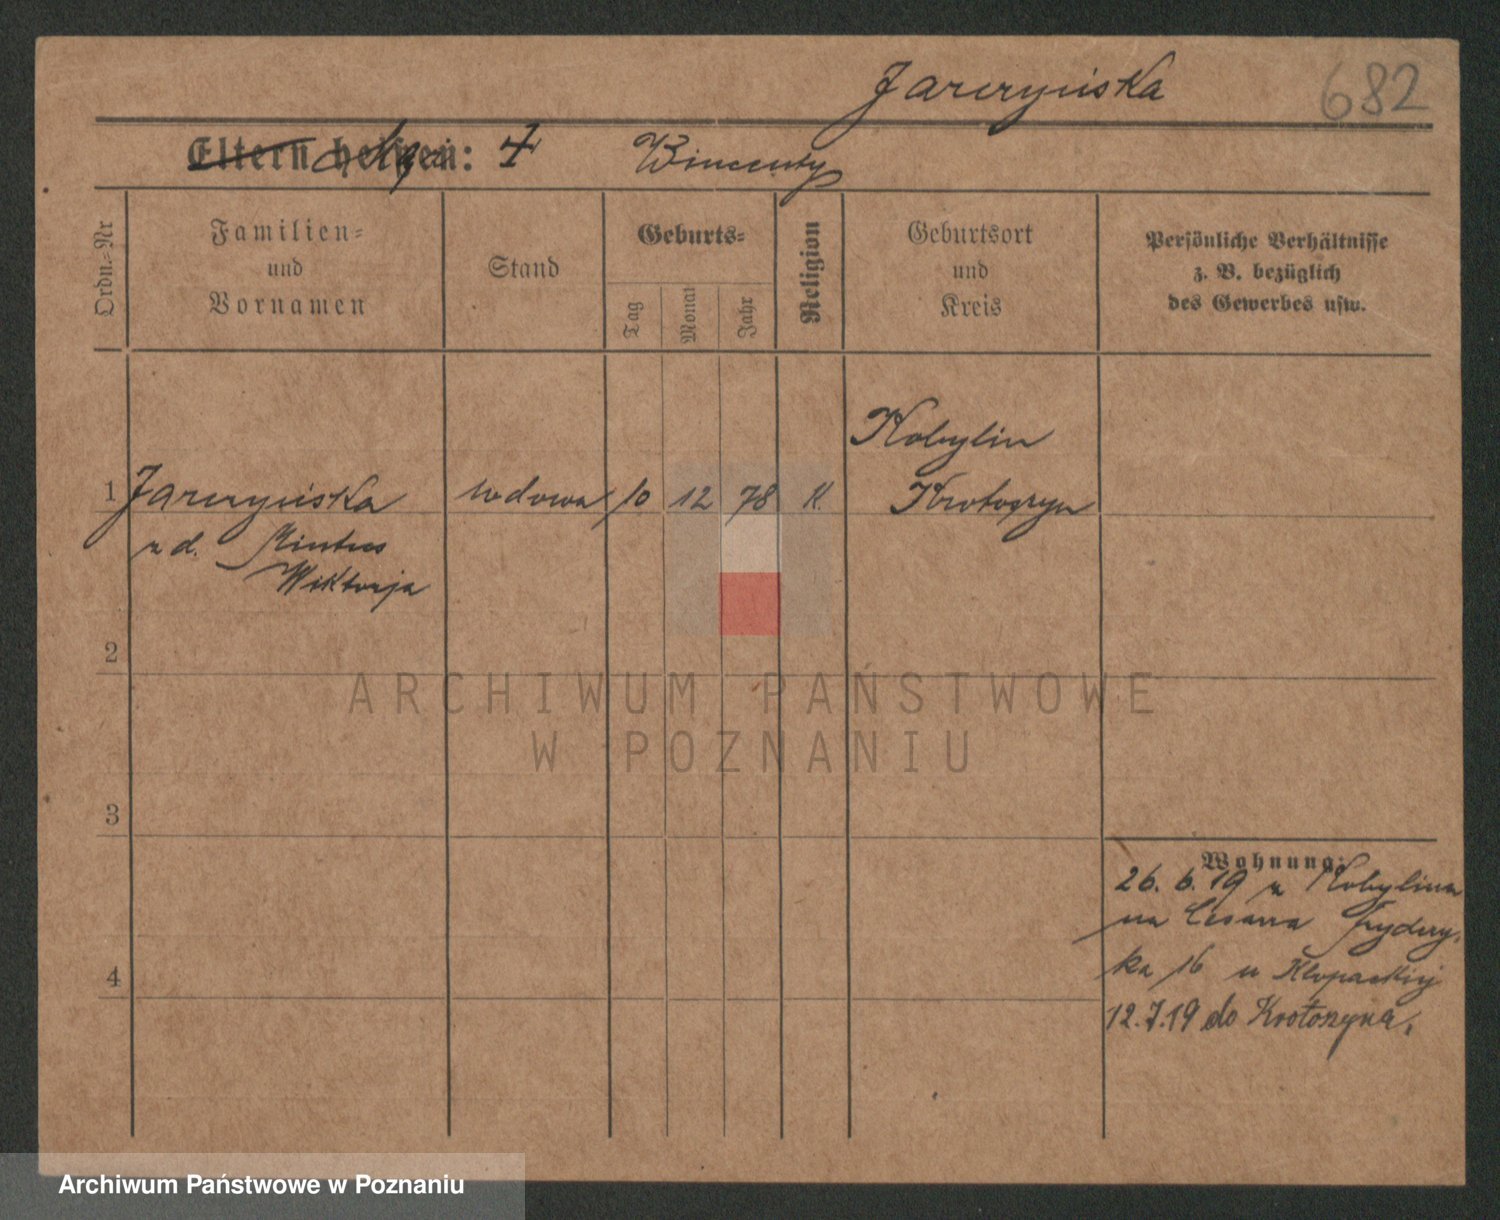 Jarczyńska 682
Eltern heißen: † Wincenty
Ordn.-Nr
Familien-
und
Vornamen
Stand
Geburts-
Tag
Monat
Jahr
Religion
Geburtsort
und
Kreis
Persönliche Verhältnisse
z. B. bezüglich
des Gewerbes usw.
Kobylin
1 Jarczyńska wdowa 10 12 78 K. Krotoszyn
z d.
Wiktorja
2
ARCHIWUM PAŃSTWOWE
W POZNANIU
3
Wohnung:
26. 6. 19 z Kobylina
na Cesarza Frydery-
4
ka 16 u
12.7.19 do Krotoszyna.
Archiwum Państwowe w Poznaniu